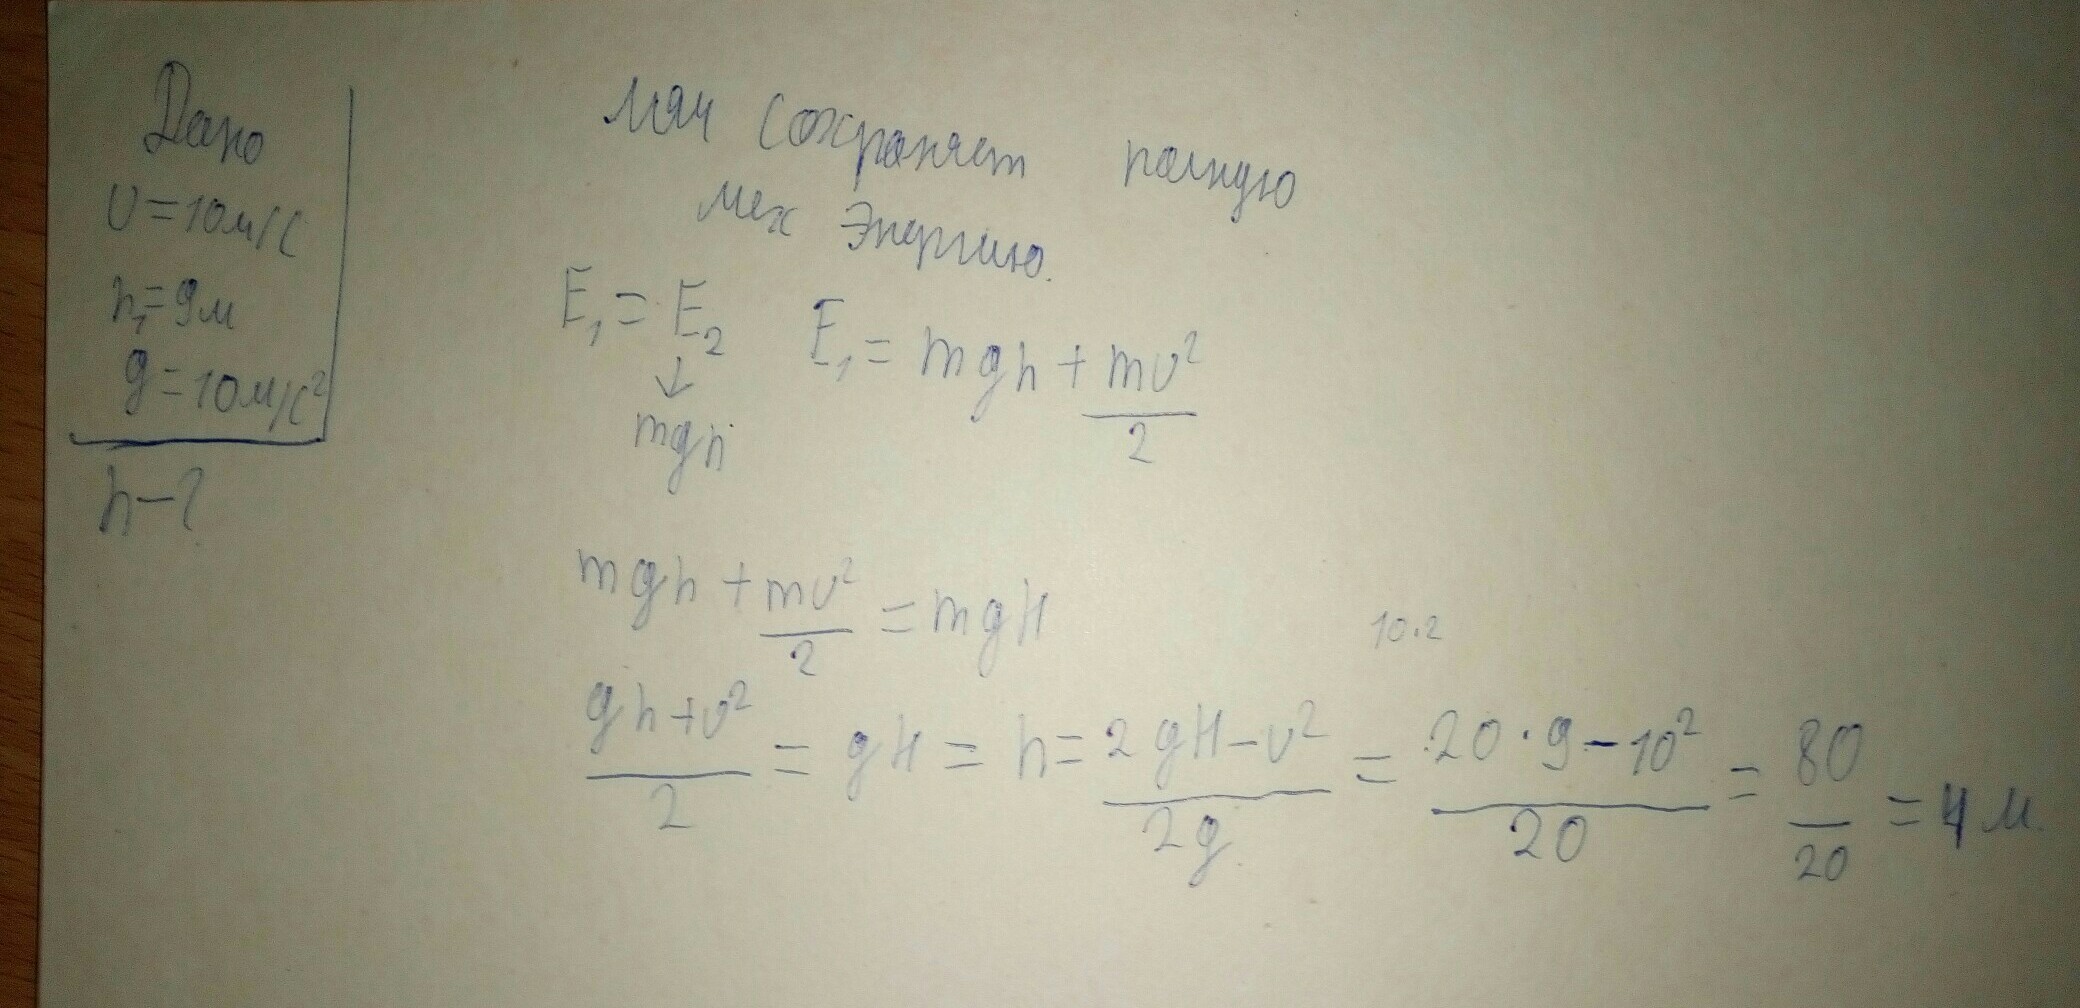 Дано
υ=10м/с
h₁=9м
g=10м/с²
h-?
Мяч сохраняет полную
мех энергию.
E₁=E₂
↓
mgh
E₁=mgh+mυ²/2
mgh+mυ²/2=mgH
10·2
gh+υ²/2=gH=h=2gH-υ²/2g=20·9-10²/20=80/20=4м.